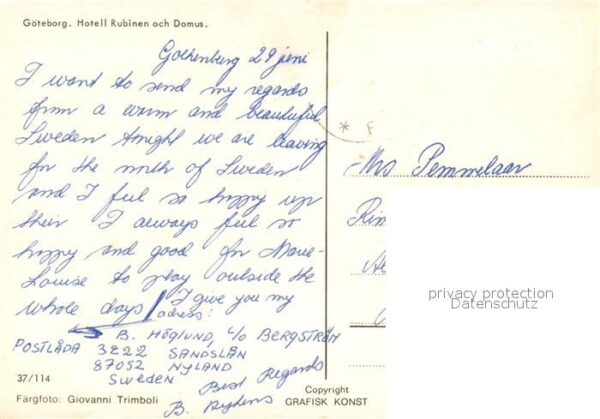 Göteborg. Hotell Rubinen och Domus.
Gothenburg 29 juni
I want to send my regards
from a warm and beautiful
Sweden tonight we are leaving
for the north of Sweden
and I feel so happy up
their I always feel so
happy and good for Marie-
Louise to play outside the
whole days I give you my
adress:
B. HÖGLUND, c/o BERGSTRÖM
POSTLÅDA 3222 SANDSLÅN
87052 NYLAND
SWEDEN
Best Regards
B.
37/114
Färgfoto: Giovanni Trimboli
Copyright
GRAFISK KONST
Mrs Pemmelaar
privacy protection
Datenschutz